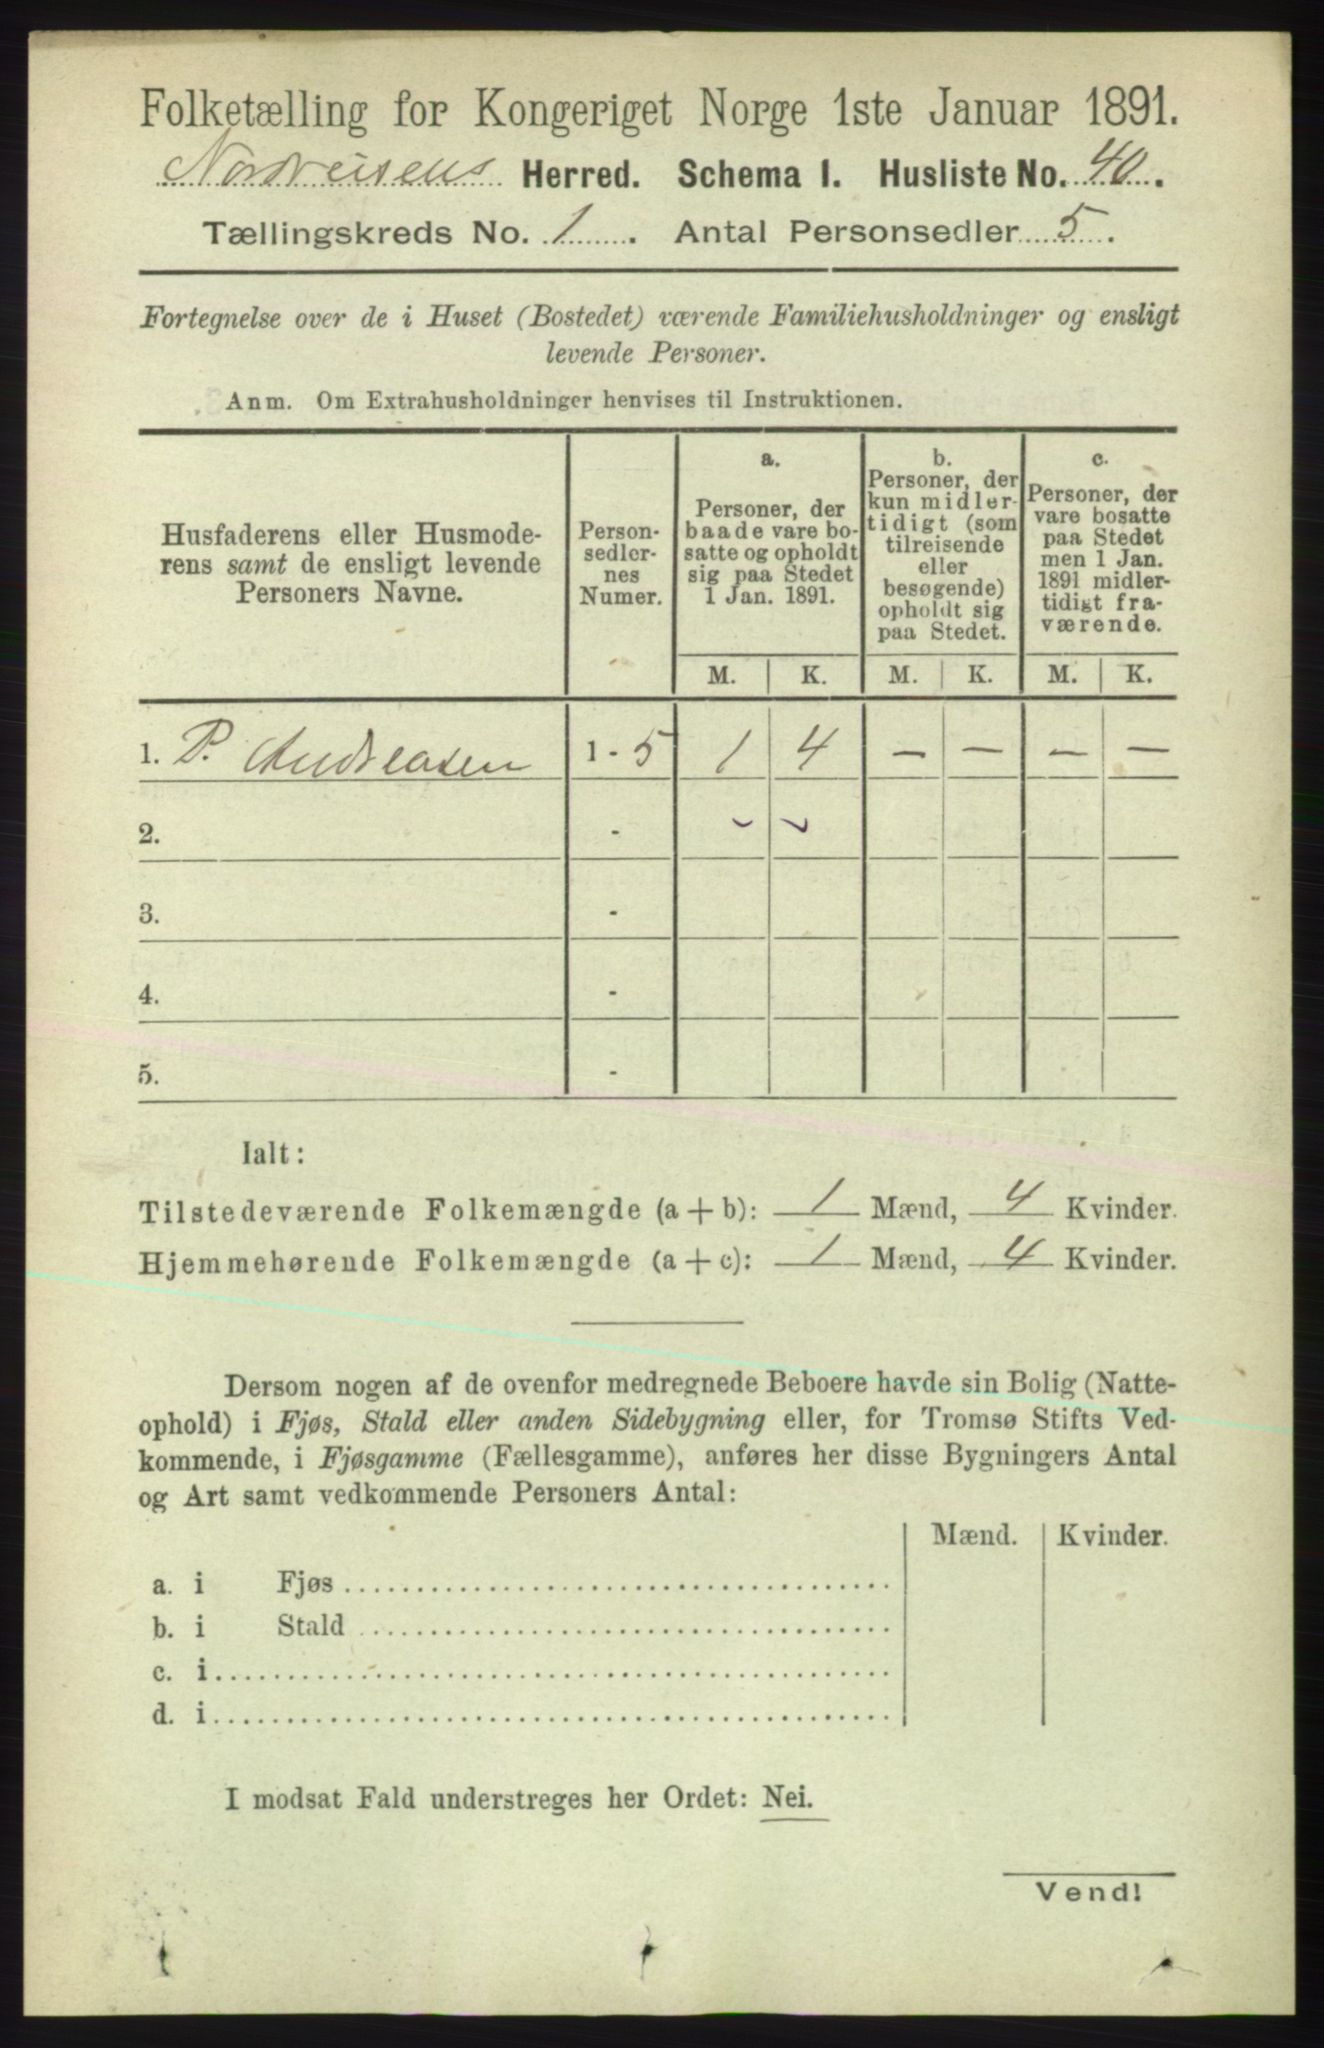 Folketælling for Kongeriget Norge 1ste Januar 1891.
Nordreisens Herred. Schema I. Husliste No. 40.
Tællingskreds No. 1. Antal Personsedler 5.
Fortegnelse over de i Huset (Bostedet) værende Familiehusholdninger og ensligt
levende Personer.
Anm. Om Extrahusholdninger henvises til Instruktionen.
Husfaderens eller Husmode-
rens samt de ensligt levende
Personers Navne.
Person-
sedler-
nes
Numer.
a.
Personer, der
baade vare bo-
satte og opholdt
sig paa Stedet
1 Jan. 1891.
b.
Personer, der
kun midler-
tidigt (som
tilreisende
eller
besøgende)
opholdt sig
paa Stedet.
c.
Personer, der
vare bosatte
paa Stedet
men 1 Jan.
1891 midler-
tidigt fra-
værende.
M. K. M. K. M. K.
1. P. Andreasen 1 - 5 1 4 — — — —
2. -
3. -
4. -
5. -
Ialt:
Tilstedeværende Folkemængde (a + b): 1 Mænd, 4 Kvinder.
Hjemmehørende Folkemængde (a + c): 1 Mænd, 4 Kvinder.
Dersom nogen af de ovenfor medregnede Beboere havde sin Bolig (Natte-
ophold) i Fjøs, Stald eller anden Sidebygning eller, for Tromsø Stifts Ved-
kommende, i Fjøsgamme (Fællesgamme), anføres her disse Bygningers Antal
og Art samt vedkommende Personers Antal:
Mænd. Kvinder.
a. i Fjøs
b. i Stald
c. i
d. i
I modsat Fald understreges her Ordet: Nei.
Vend!